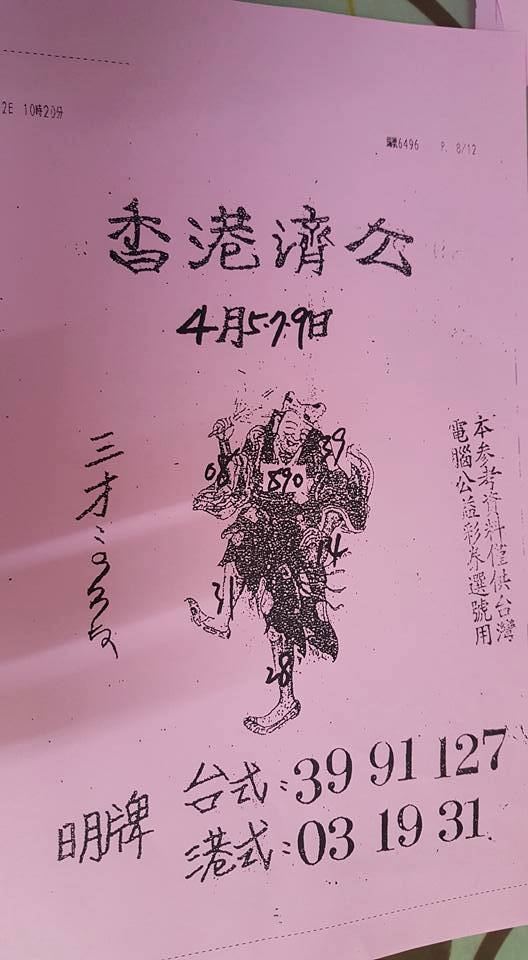 2E 10時20分
編號6496 P. 8/12
香港濟公
4月5.7.9日
本參考資料僅供台灣
電腦公益彩券選號用
39
68
890
14
31
28
三才:
明牌
台式:39 91 127
港式:03 19 31